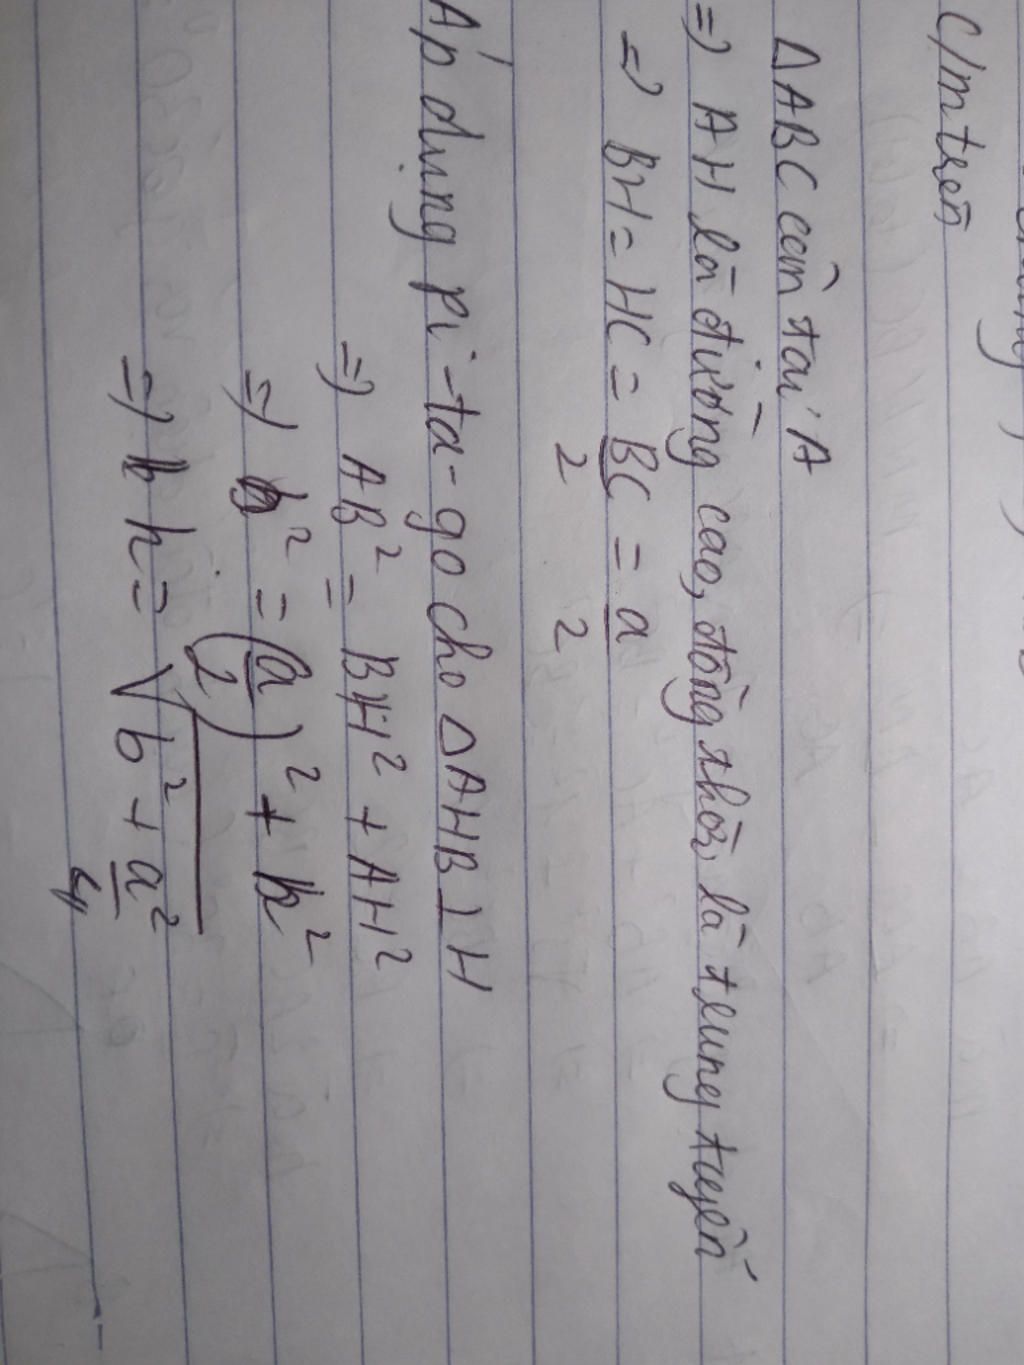 C/m trên
Δ ABC cân tại A
=) AH là đường cao, đồng thời, là trung tuyến
=) BH = HC = BC/2 = a/2
Áp dụng pi-ta-go cho Δ AHB ⊥ H
=) AB² = BH² + AH²
=) b² = (a/2)² + h²
=) h = √(b² + a²/4)